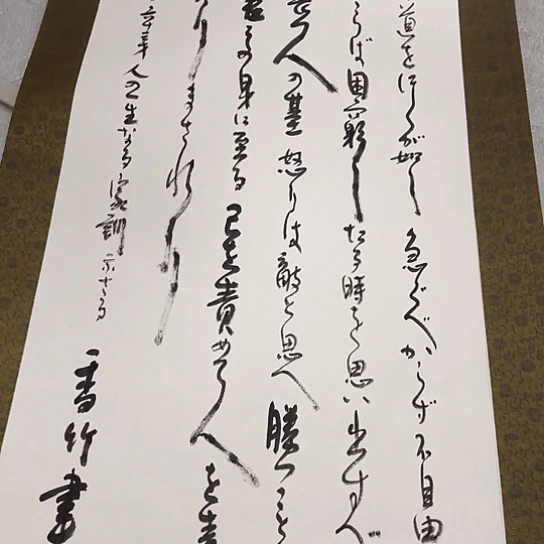 道をゆくが如し 急ぐべからず 不自由
らば困窮したる時を思い出すべ
久の基 怒りは敵と思へ 勝つこと
その身に至る 己を責めて人を責
よりまされり
人の一生なる家訓 示さる
香竹書